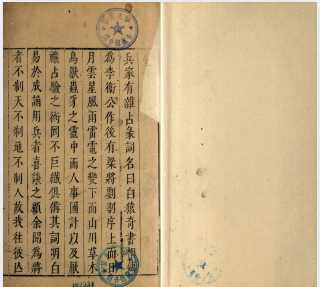 兵家有雜占彖詞名曰白猿奇書相
為李衛公作後有梁將劉鄩序上而日
月雲星風雨雷電之變下而山川草木
鳥獸蟲豸之靈中而人事國計以及厭
雜占驗之術罔不巨纖俱備其詞明白
易於成誦用兵者喜談之顧余聞為將
者不制天不制地不制人故我往彼亡